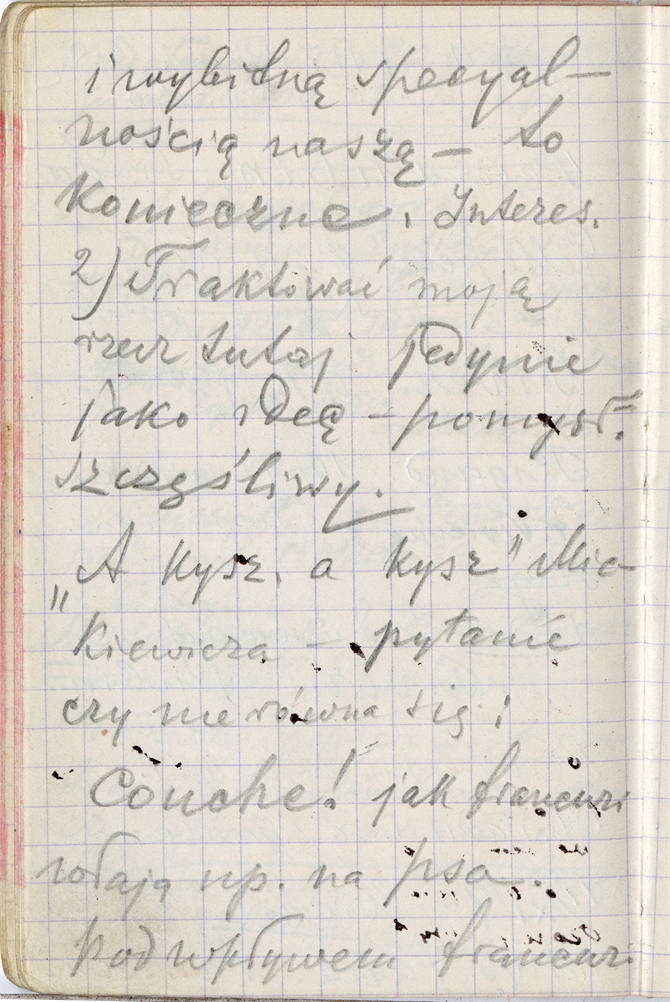 i wybitną specyal-
nością naszą - to
konieczne. Interes.
2) Traktować moją
rzecz tutaj jedynie
jako ideę - pomysł.
szczęśliwy.
„A kysz, a kysz" Mic-
kiewicza - pytanie
czy nie równa się:
Couche! jak francuzi
wołają np. na psa.
Pod wpływem francuz.